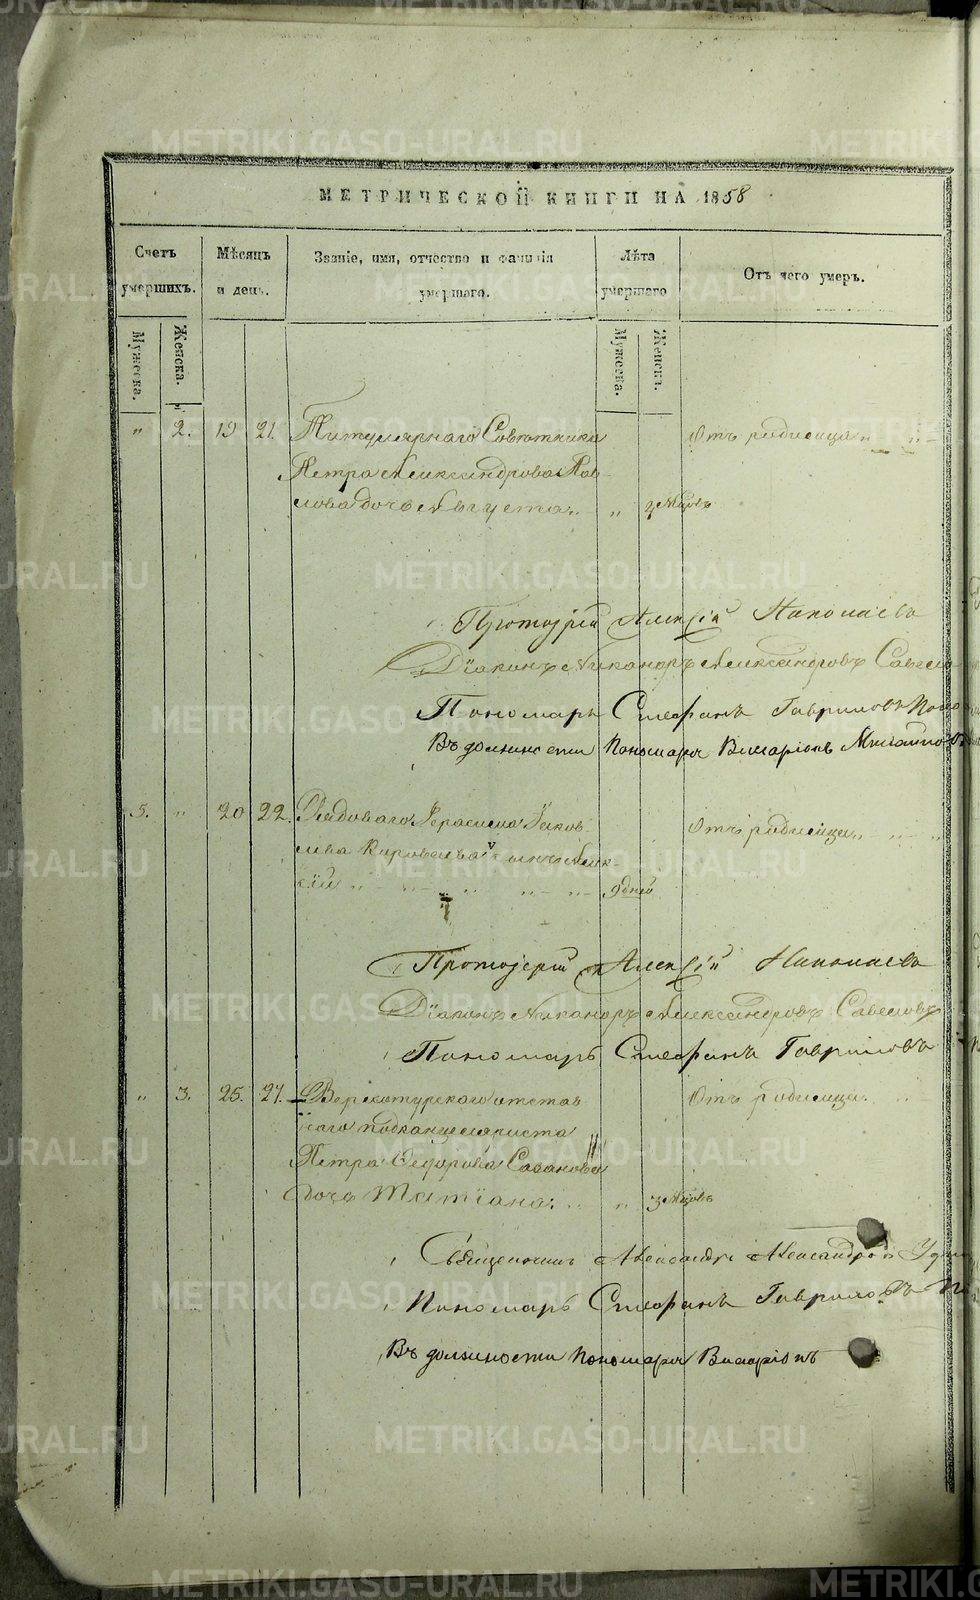 МЕТРИЧЕСКОЙ КНИГИ НА 1858
Счетъ умершихъ.
Мѣсяцъ и день.
Званіе, имя, отчество и фамилія умершаго.
Лѣта умершаго
Отъ чего умеръ.
Мужеска.
Женска.
Мужеска.
Женск.
" 2. 19 21. Титулярнаго Совѣтника Отъ родимца " "
Петра Александрова Пав-
лова дочь Августа " " 2 мѣсцъ
Протоіерей Алексій Николаевъ
Діаконъ Никаноръ Александровъ
Пономарь Стефанъ Гавриловъ
Въ должности Пономаря Виссаріонъ
5. " 20 22. Рядоваго Герасима Яков- Отъ родимца " "
лева сынъ Алек-
сій " " " " " 9 дней
Протоіерей Алексій Николаевъ
Діаконъ Никаноръ Александровъ Савеловъ
Пономарь Стефанъ Гавриловъ
" 3. 25. 27. Верхотурскаго отстав Отъ родимца "
наго подканцеляриста
Петра Федорова Сазанова
дочь Татіана. " " 3 мѣсцъ
Священникъ Александръ Александровъ
Пономарь Стефанъ Гавриловъ
Въ должности Пономаря Виссаріонъ
METRIKI.GASO-URAL.RU